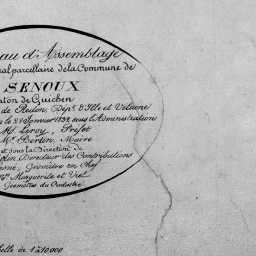 au d'Assemblage
al parcellaire de la Commune de
SENOUX
nton de Guichen
de Redon, Dépt. d'Ille et Vilaine
le 21 Janvier 1832, sous l'Administration
M. Leroy, Préfet
Mr. Bertin, Maire
et sous la Direction de
Directeur des Contributions
Géomètre en Chef
Mrs. Marguerite et Viel
Géomètres du Cadastre
elle de 1 à 10.000